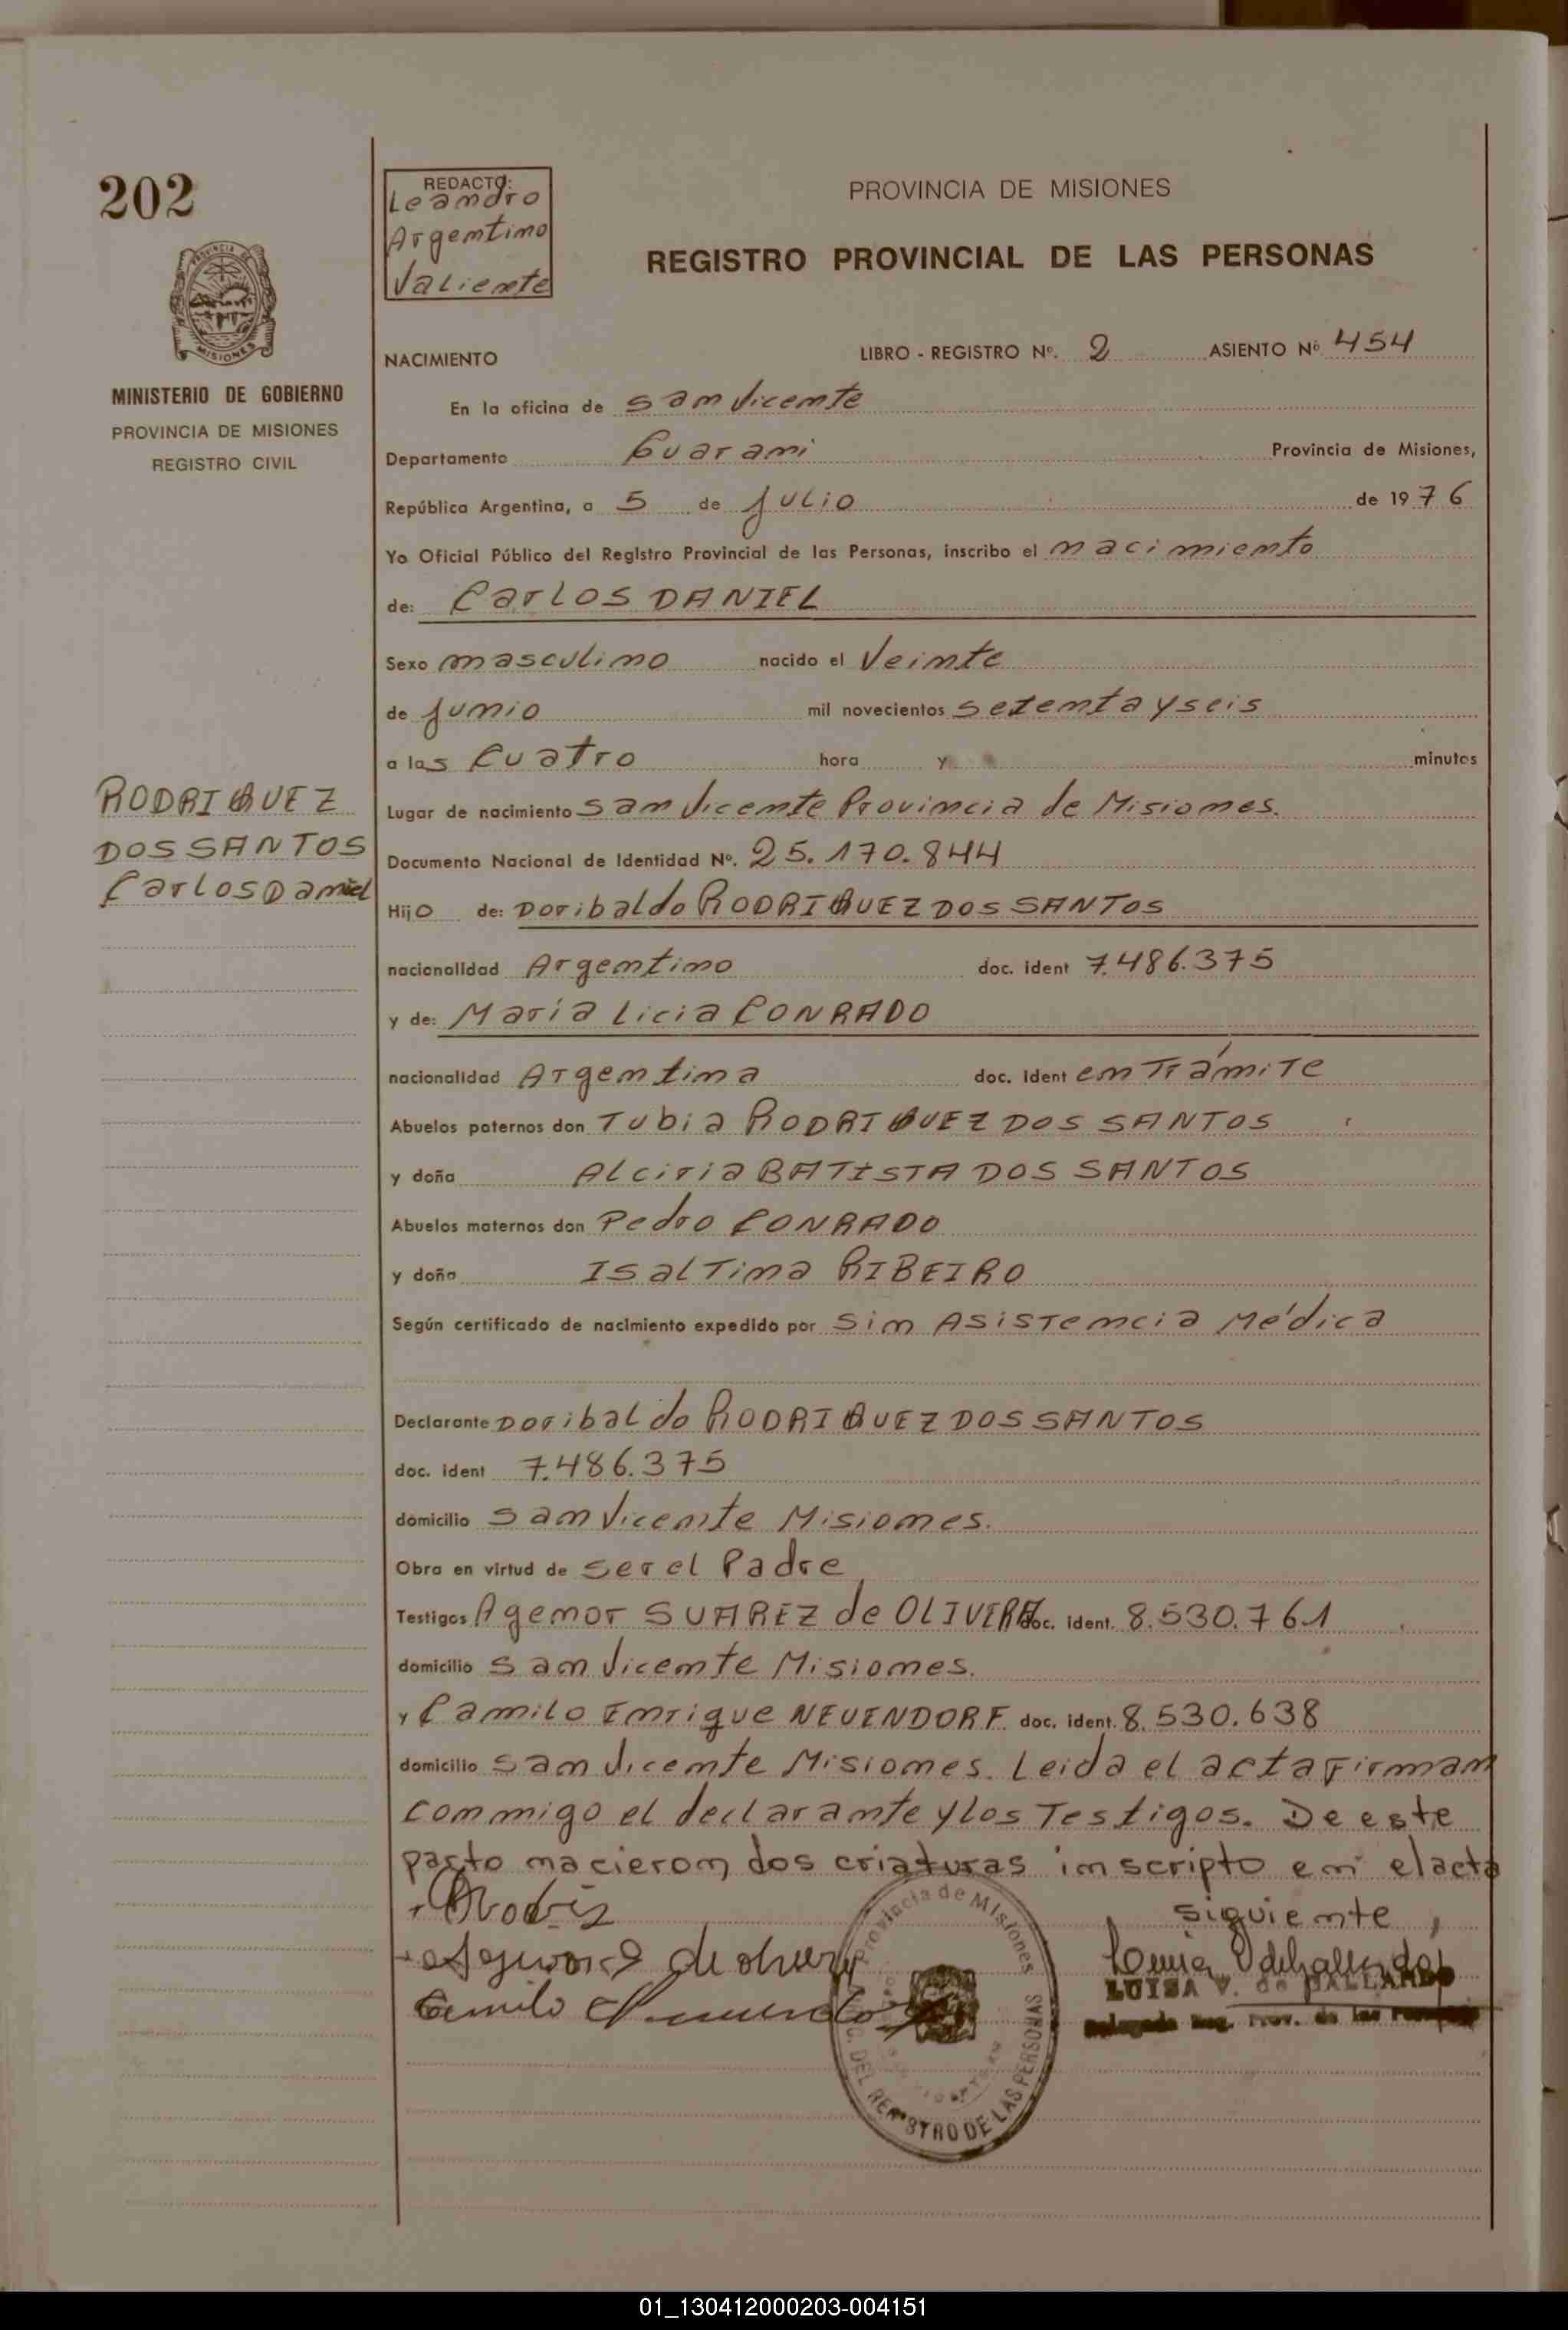 202
REDACTO:
Leandro
Argentino
Valiente
PROVINCIA DE MISIONES
REGISTRO PROVINCIAL DE LAS PERSONAS
MISIONES
MINISTERIO DE GOBIERNO
PROVINCIA DE MISIONES
REGISTRO CIVIL
NACIMIENTO LIBRO - REGISTRO Nº. 2 ASIENTO Nº 454
En la oficina de San Vicente
Departamento Guarani Provincia de Misiones,
República Argentina, a 5 de Julio de 1976
Yo Oficial Público del Registro Provincial de las Personas, inscribo el nacimiento
de: Carlos DANIEL
Sexo masculino nacido el Veinte
de Junio mil novecientos setenta y seis
a las Cuatro hora y minutos
RODRIGUEZ
DOS SANTOS
Carlos Daniel
Lugar de nacimiento San Vicente Provincia de Misiones.
Documento Nacional de Identidad Nº. 25.170.844
Hijo de: Doribaldo RODRIGUEZ DOS SANTOS
nacionalidad Argentino doc. ident 7.486.375
y de: María Licia CONRADO
nacionalidad Argentina doc. ident en Trámite
Abuelos paternos don Tubia RODRIGUEZ DOS SANTOS
y doña Alciria BATISTA DOS SANTOS
Abuelos maternos don Pedro CONRADO
y doña Isaltina RIBEIRO
Según certificado de nacimiento expedido por Sin Asistencia Médica
Declarante Doribaldo RODRIGUEZ DOS SANTOS
doc. ident 7.486.375
domicilio San Vicente Misiones.
Obra en virtud de ser el Padre
Testigos Agenor SUAREZ de OLIVERA doc. ident. 8.530.761
domicilio San Vicente Misiones.
y Camilo Enrique NEUENDORF. doc. ident. 8.530.638
domicilio San Vicente Misiones. Leida el acta Firman
conmigo el declarante y los Testigos. De este
parto nacieron dos criaturas inscripto en el acta
siguiente
Provincia de Misiones
DEL REGISTRO DE LAS PERSONAS
LUISA V. de GALLARDO
Delegada Reg. Prov. de las Personas
01_130412000203-004151